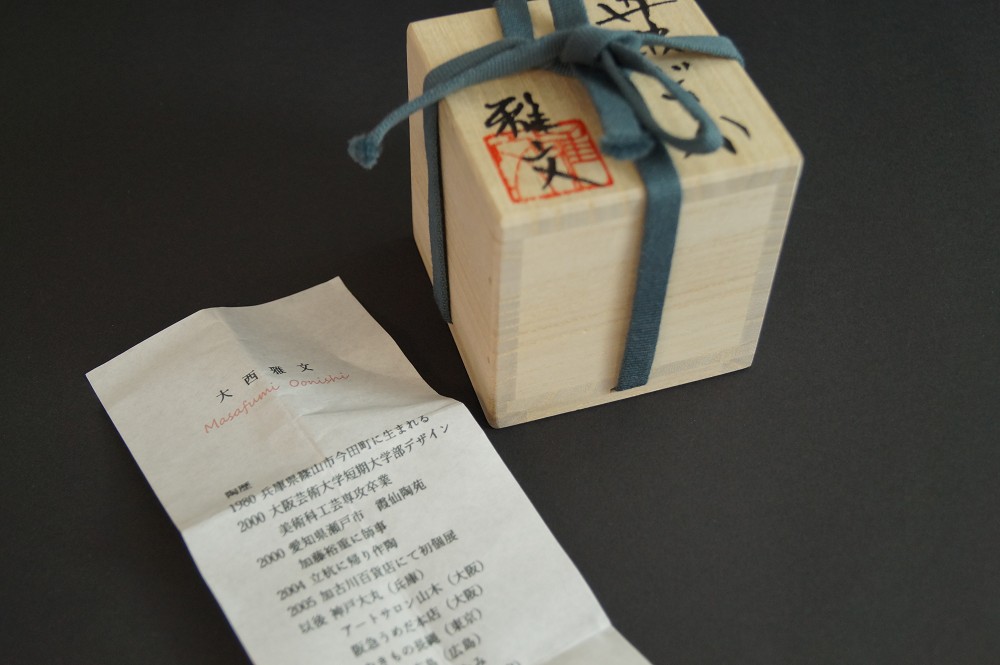 雅文
大西雅文
Masafumi Oonishi
陶歴
1980 兵庫県篠山市今田町に生まれる
2000 大阪芸術大学短期大学部デザイン
美術科工芸専攻卒業
2000 愛知県瀬戸市 霞仙陶苑
加藤裕重に師事
2004 立杭に帰り作陶
2005 加古川百貨店にて初個展
以後 神戸大丸(兵庫)
アートサロン山木(大阪)
阪急うめだ本店(大阪)
きもの長縄(東京)
(広島)